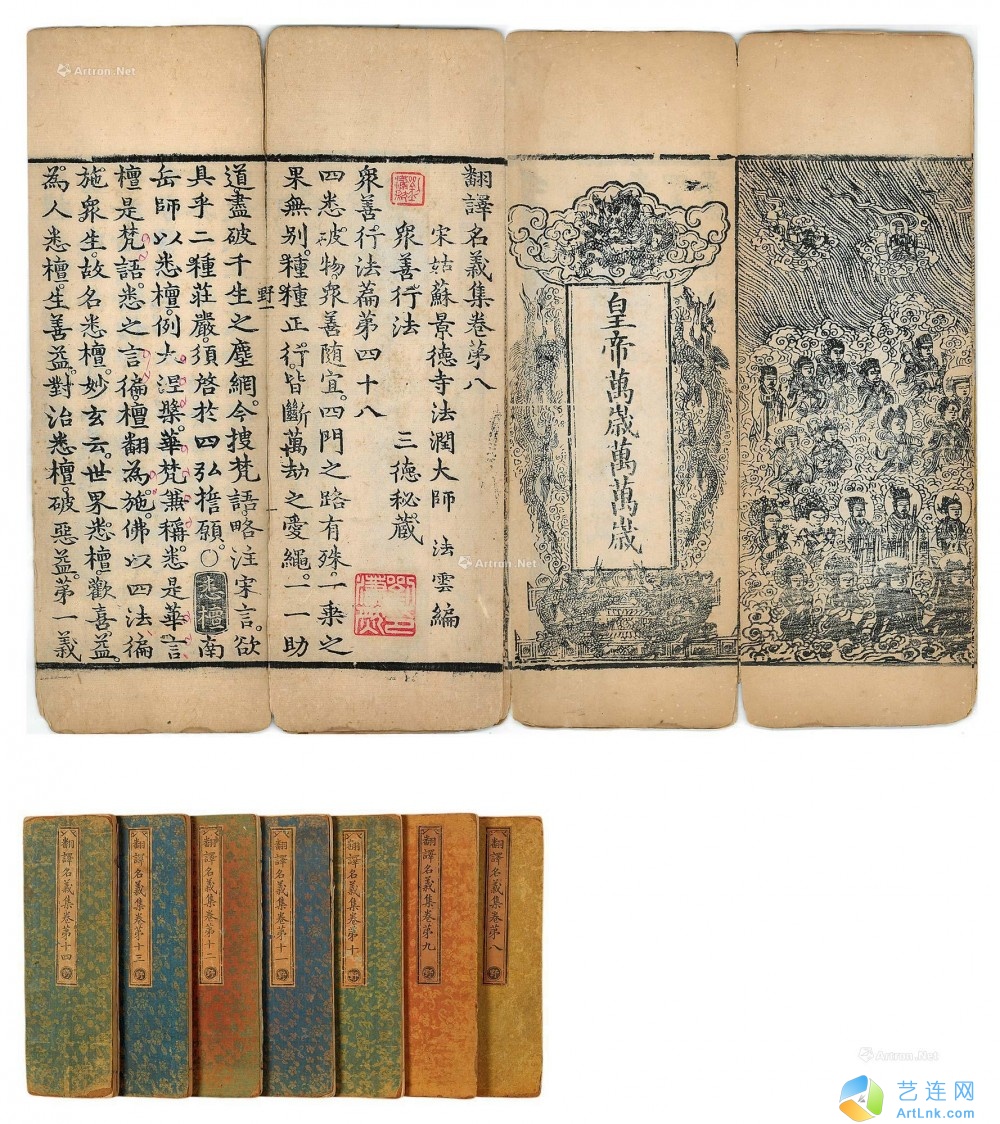 翻譯名義集卷苐八
宋姑蘇景德寺法潤大師 法雲編
衆善行法 三德秘藏
衆善行法篇第四十八
四悉破物衆善随宜四門之路有殊一乗之
果無别種種正行皆斷萬劫之愛繩一一助
野一
道盡破千生之塵網今搜梵語略注宋言欲
具乎二種莊嚴須啓於四弘擔願○悉檀南
岳師以悉檀例大涅槃華梵兼稱悉是華言
檀是梵語悉之言徧檀翻為施佛以四法徧
施衆生故名悉檀妙玄云世界悉檀歡喜益
為人悉檀生善益對治悉檀破惡益苐一義
皇帝萬歲萬萬歲
翻譯名義集卷苐十四
野
翻譯名義集卷苐十三
野
翻譯名義集卷苐十二
野
翻譯名義集卷苐十一
野
翻譯名義集卷苐十
野
翻譯名義集卷苐九
野
翻譯名義集卷苐八
野
Artron.Net
Artron.Net
Artron.Net
艺连网
ArtLnk.com